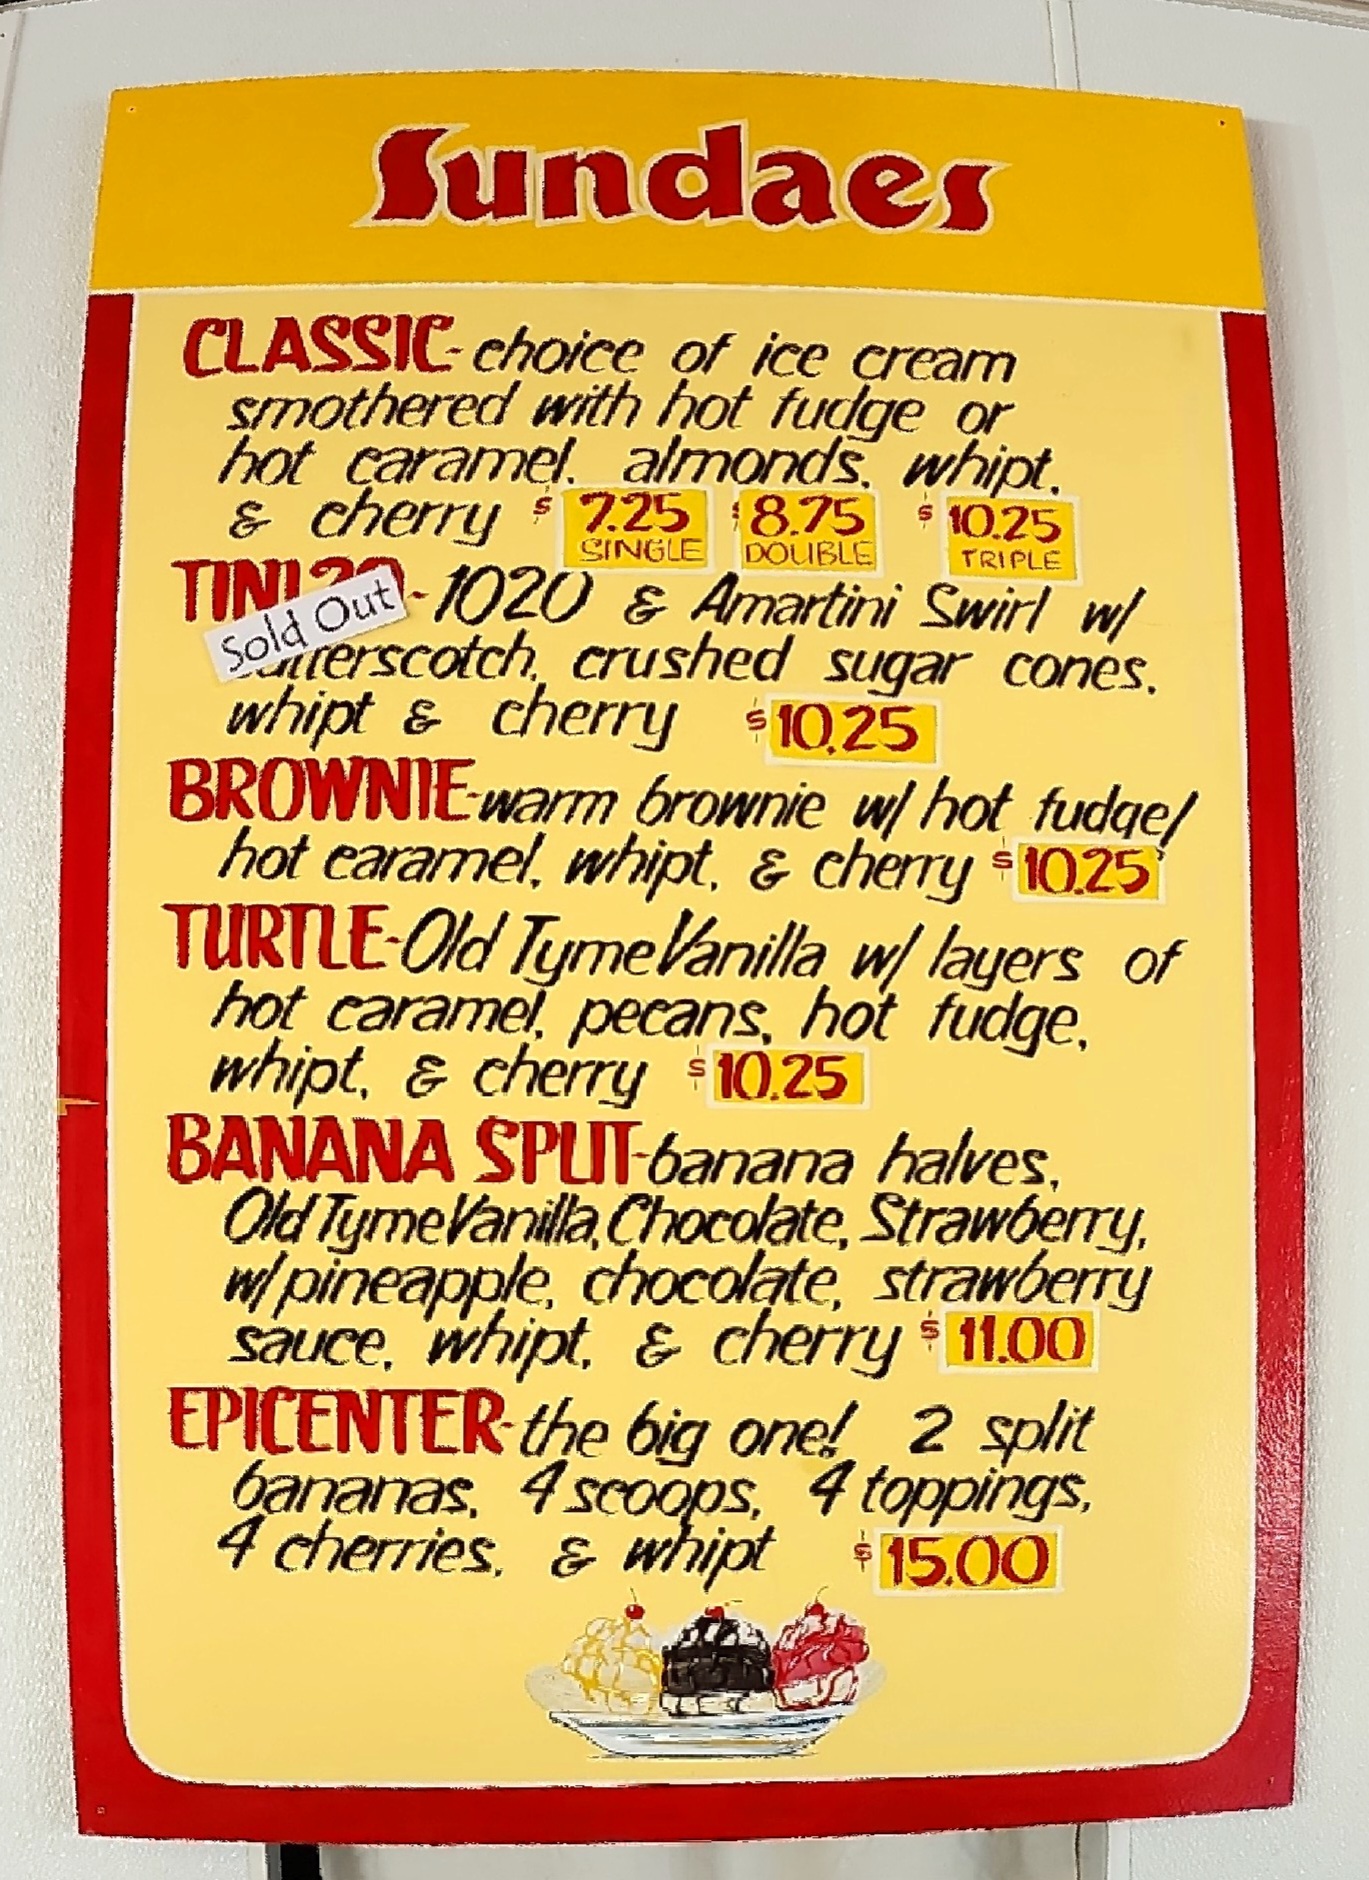 Sundaes
CLASSIC- choice of ice cream
smothered with hot fudge or
hot caramel, almonds, whipt,
& cherry $7.25 $8.75 $10.25
SINGLE DOUBLE TRIPLE
- 1020 & Amartini Swirl w/
Sold Out
crushed sugar cones,
whipt & cherry $10.25
BROWNIE-warm brownie w/ hot fudge/
hot caramel, whipt, & cherry $10.25
TURTLE-Old Tyme Vanilla w/ layers of
hot caramel, pecans, hot fudge,
whipt, & cherry $10.25
BANANA SPLIT-banana halves,
Old Tyme Vanilla, Chocolate, Strawberry,
w/ pineapple, chocolate, strawberry
sauce, whipt, & cherry $11.00
EPICENTER-the big one! 2 split
bananas, 4 scoops, 4 toppings,
4 cherries, & whipt $15.00